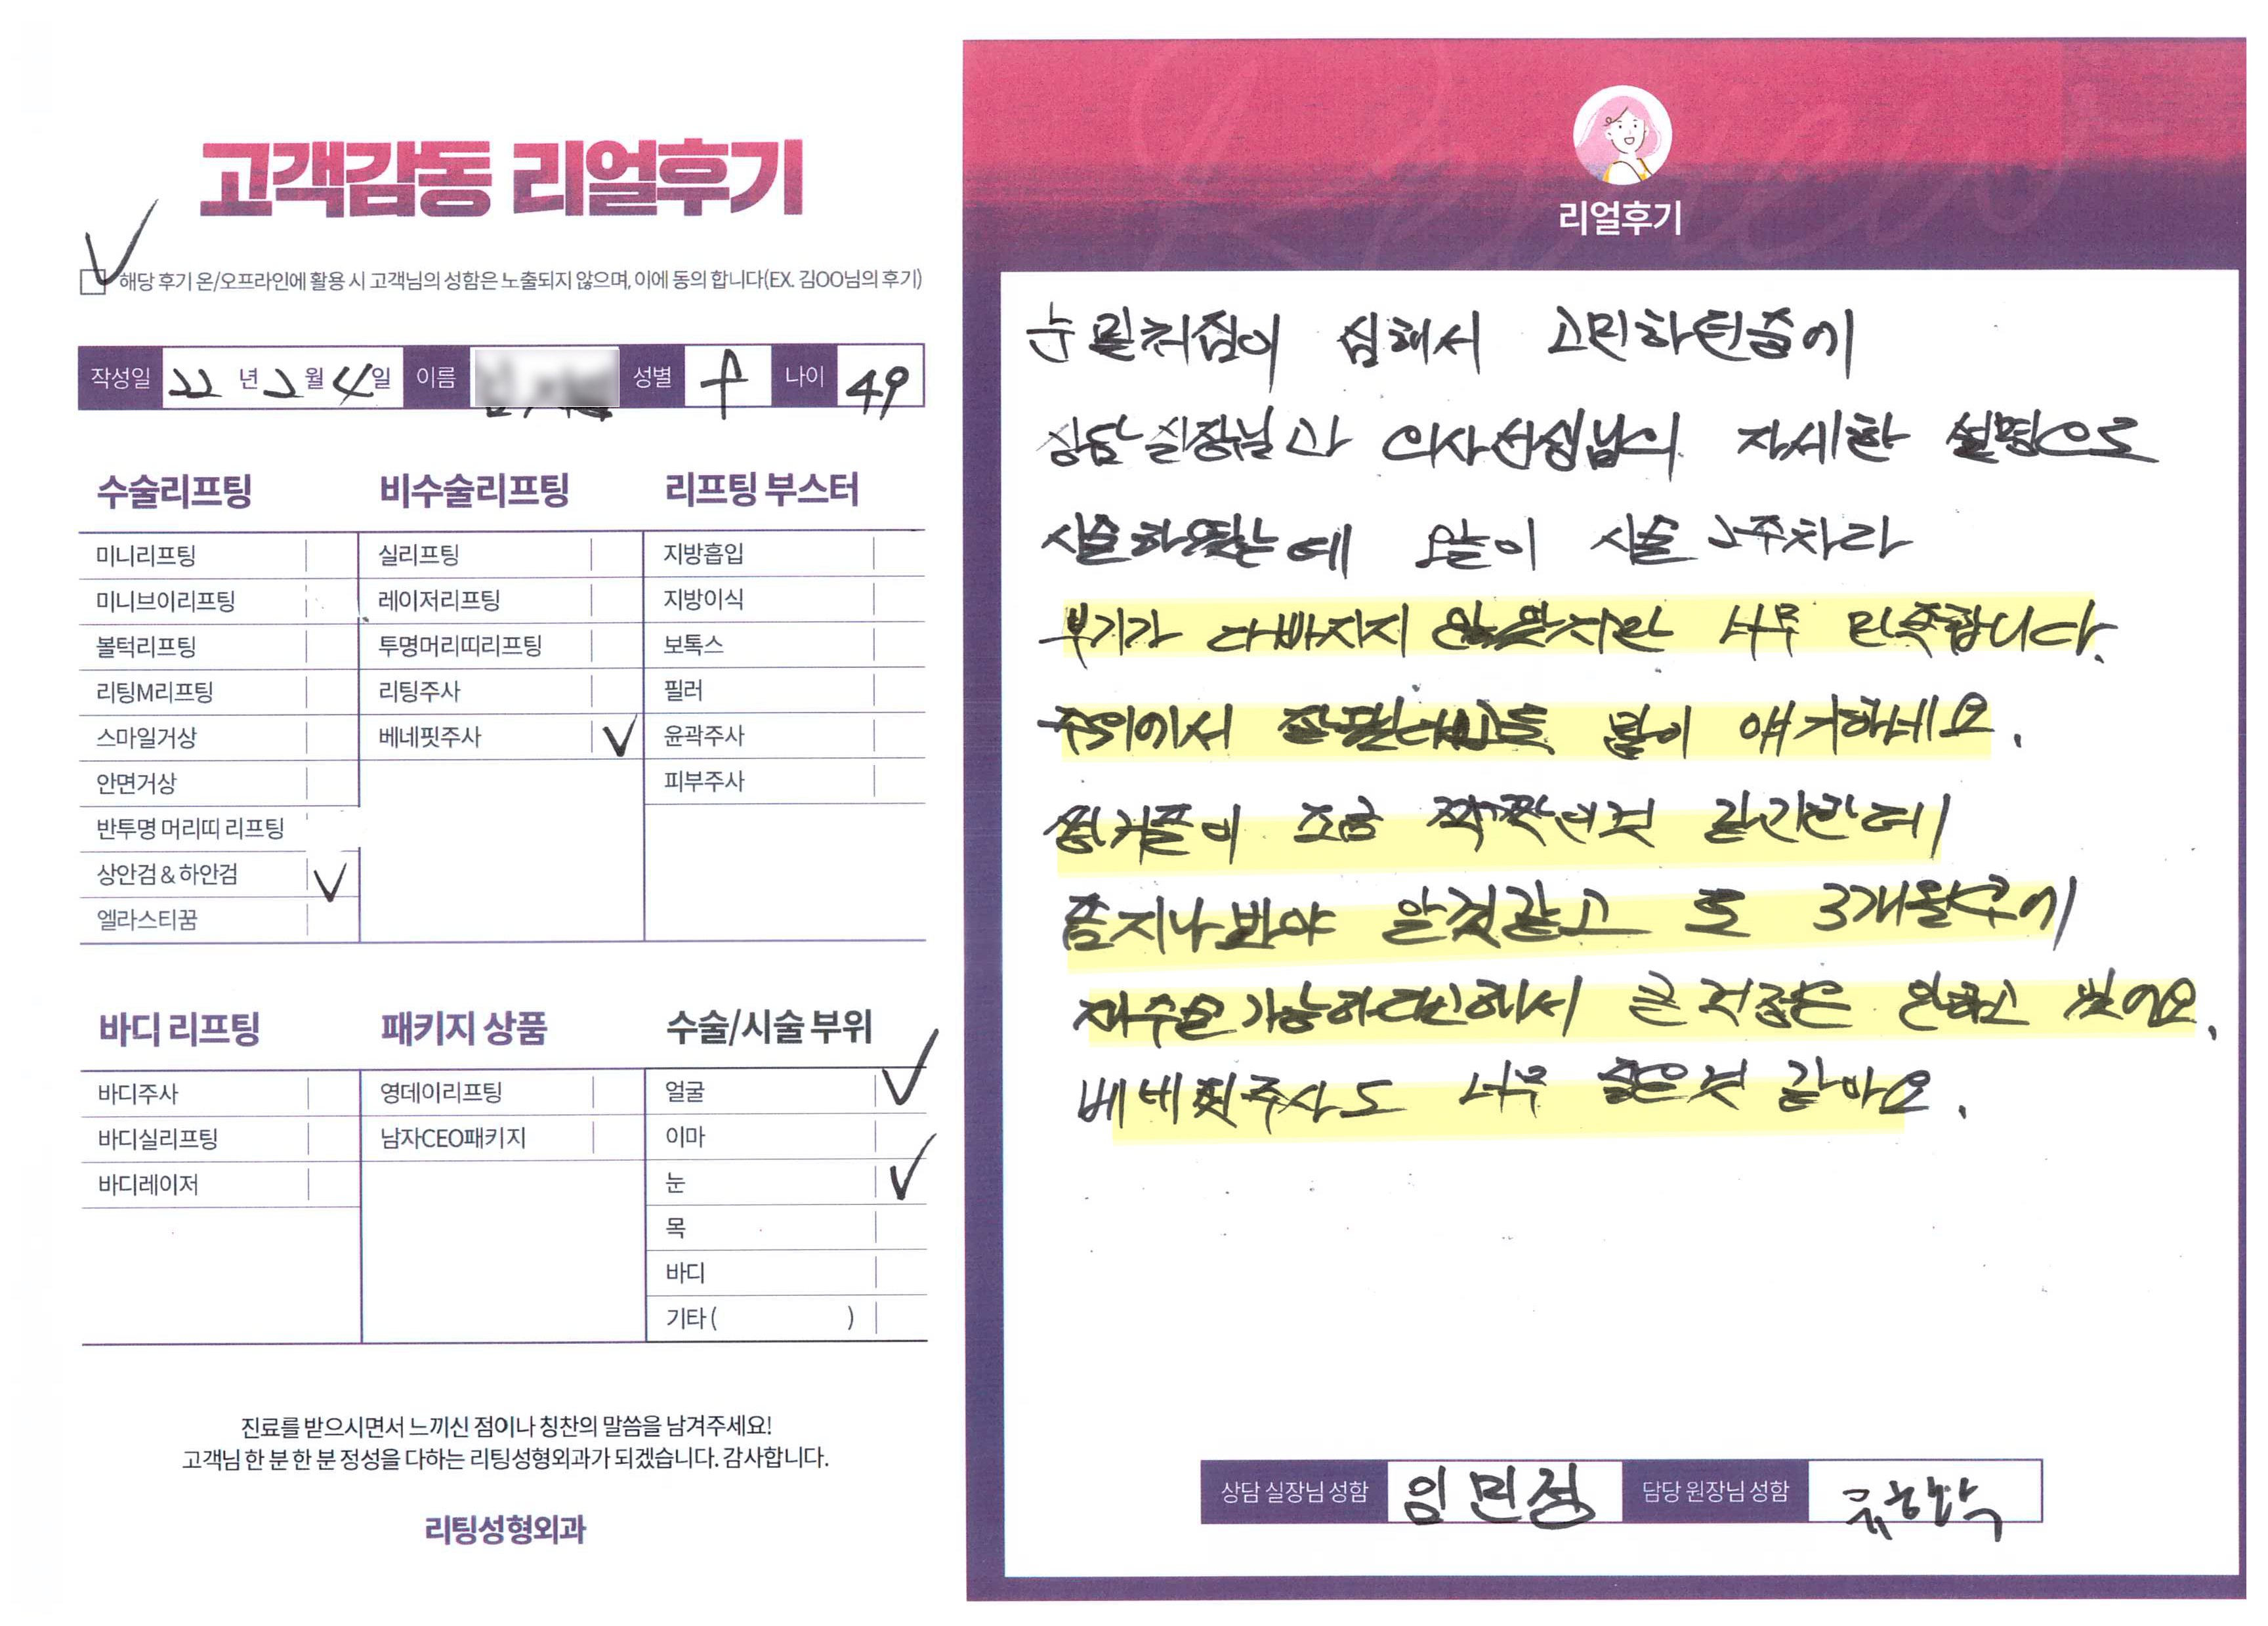 고객감동 리얼후기
해당 후기 온/오프라인에 활용 시 고객님의 성함은 노출되지 않으며, 이에 동의 합니다(EX. 김OO님의 후기)
작성일 22 년 2 월 4 일 이름 성별 f 나이 49
수술리프팅
미니리프팅
미니브이리프팅
볼턱리프팅
리팅M리프팅
스마일거상
안면거상
반투명 머리띠 리프팅
상안검 & 하안검
엘라스티꿈
비수술리프팅
실리프팅
레이저리프팅
투명머리띠리프팅
리팅주사
베네핏주사
리프팅 부스터
지방흡입
지방이식
보톡스
필러
윤곽주사
피부주사
바디 리프팅
바디주사
바디실리프팅
바디레이저
패키지 상품
영데이리프팅
남자CEO패키지
수술/시술 부위
얼굴
이마
눈
목
바디
기타 ( )
진료를 받으시면서 느끼신 점이나 칭찬의 말씀을 남겨주세요!
고객님 한 분 한 분 정성을 다하는 리팅성형외과가 되겠습니다. 감사합니다.
리팅성형외과
리얼후기
눈밑처짐이 심해서 고민하던중에
상담실장님과 의사선생님의 자세한 설명으로
시술하였는데 오늘이 시술 2주차라
부기가 다빠지지 않았지만 너무 만족합니다.
주위에서 잘됐다고들 많이 얘기하네요.
쌍거풀이 조금 짝짝인것 같긴한데
좀지나봐야 알것같고 또 3개월후에
재수술가능하다고해서 큰 걱정은 안하고 있어요.
베네핏주사도 너무 좋은것 같아요.
상담 실장님 성함 임민정 담당 원장님 성함